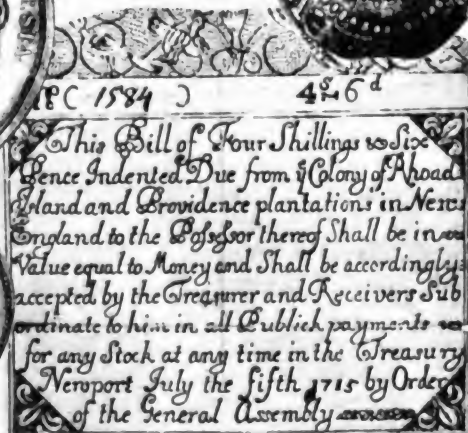 (1584)
4s 6d
This Bill of Four Shillings & Six
Pence Indented Due from ye Colony of Rhoad
Island and Providence plantations in New
England to the Possessor thereof Shall be in
Value equal to Money and Shall be accordingly
accepted by the Treasurer and Receivers Sub
ordinate to him in all Publick payments &
for any Stock at any time in the Treasury
Newport July the fifth 1715 by Order
of the General Assembly